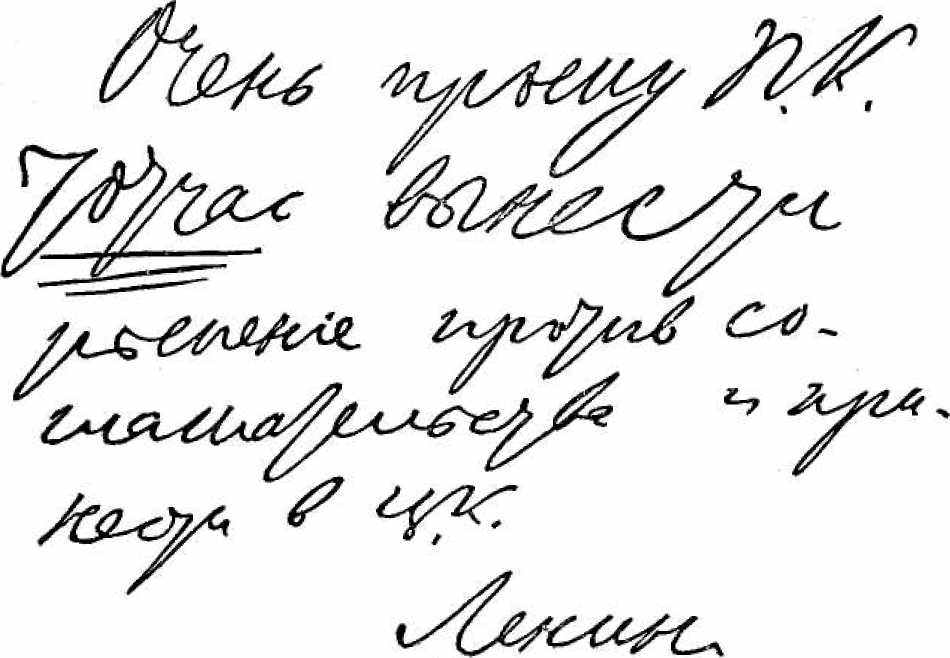 Очень прошу П.К.
тотчас вынести
решение против со-
глашательства и при-
нести в Ц.К.
Ленин